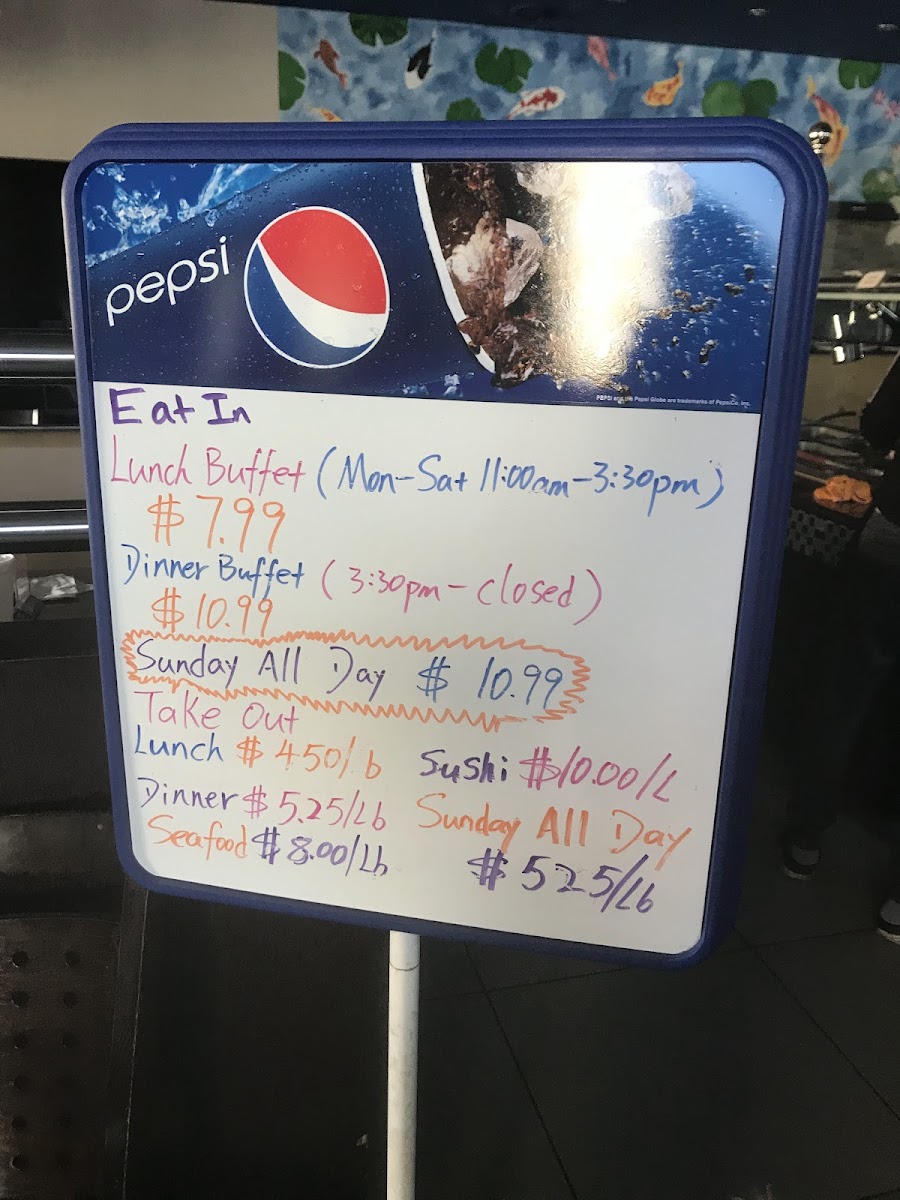 pepsi
PEPSI and the Pepsi Globe are trademarks of PepsiCo, Inc.
Eat In
Lunch Buffet (Mon-Sat 11:00am-3:30pm)
$7.99
Dinner Buffet (3:30pm-closed)
$10.99
Sunday All Day $10.99
Take Out
Lunch $4.50/lb
Dinner $5.25/Lb
Seafood $8.00/Lb
Sushi $10.00/L
Sunday All Day
$525/Lb